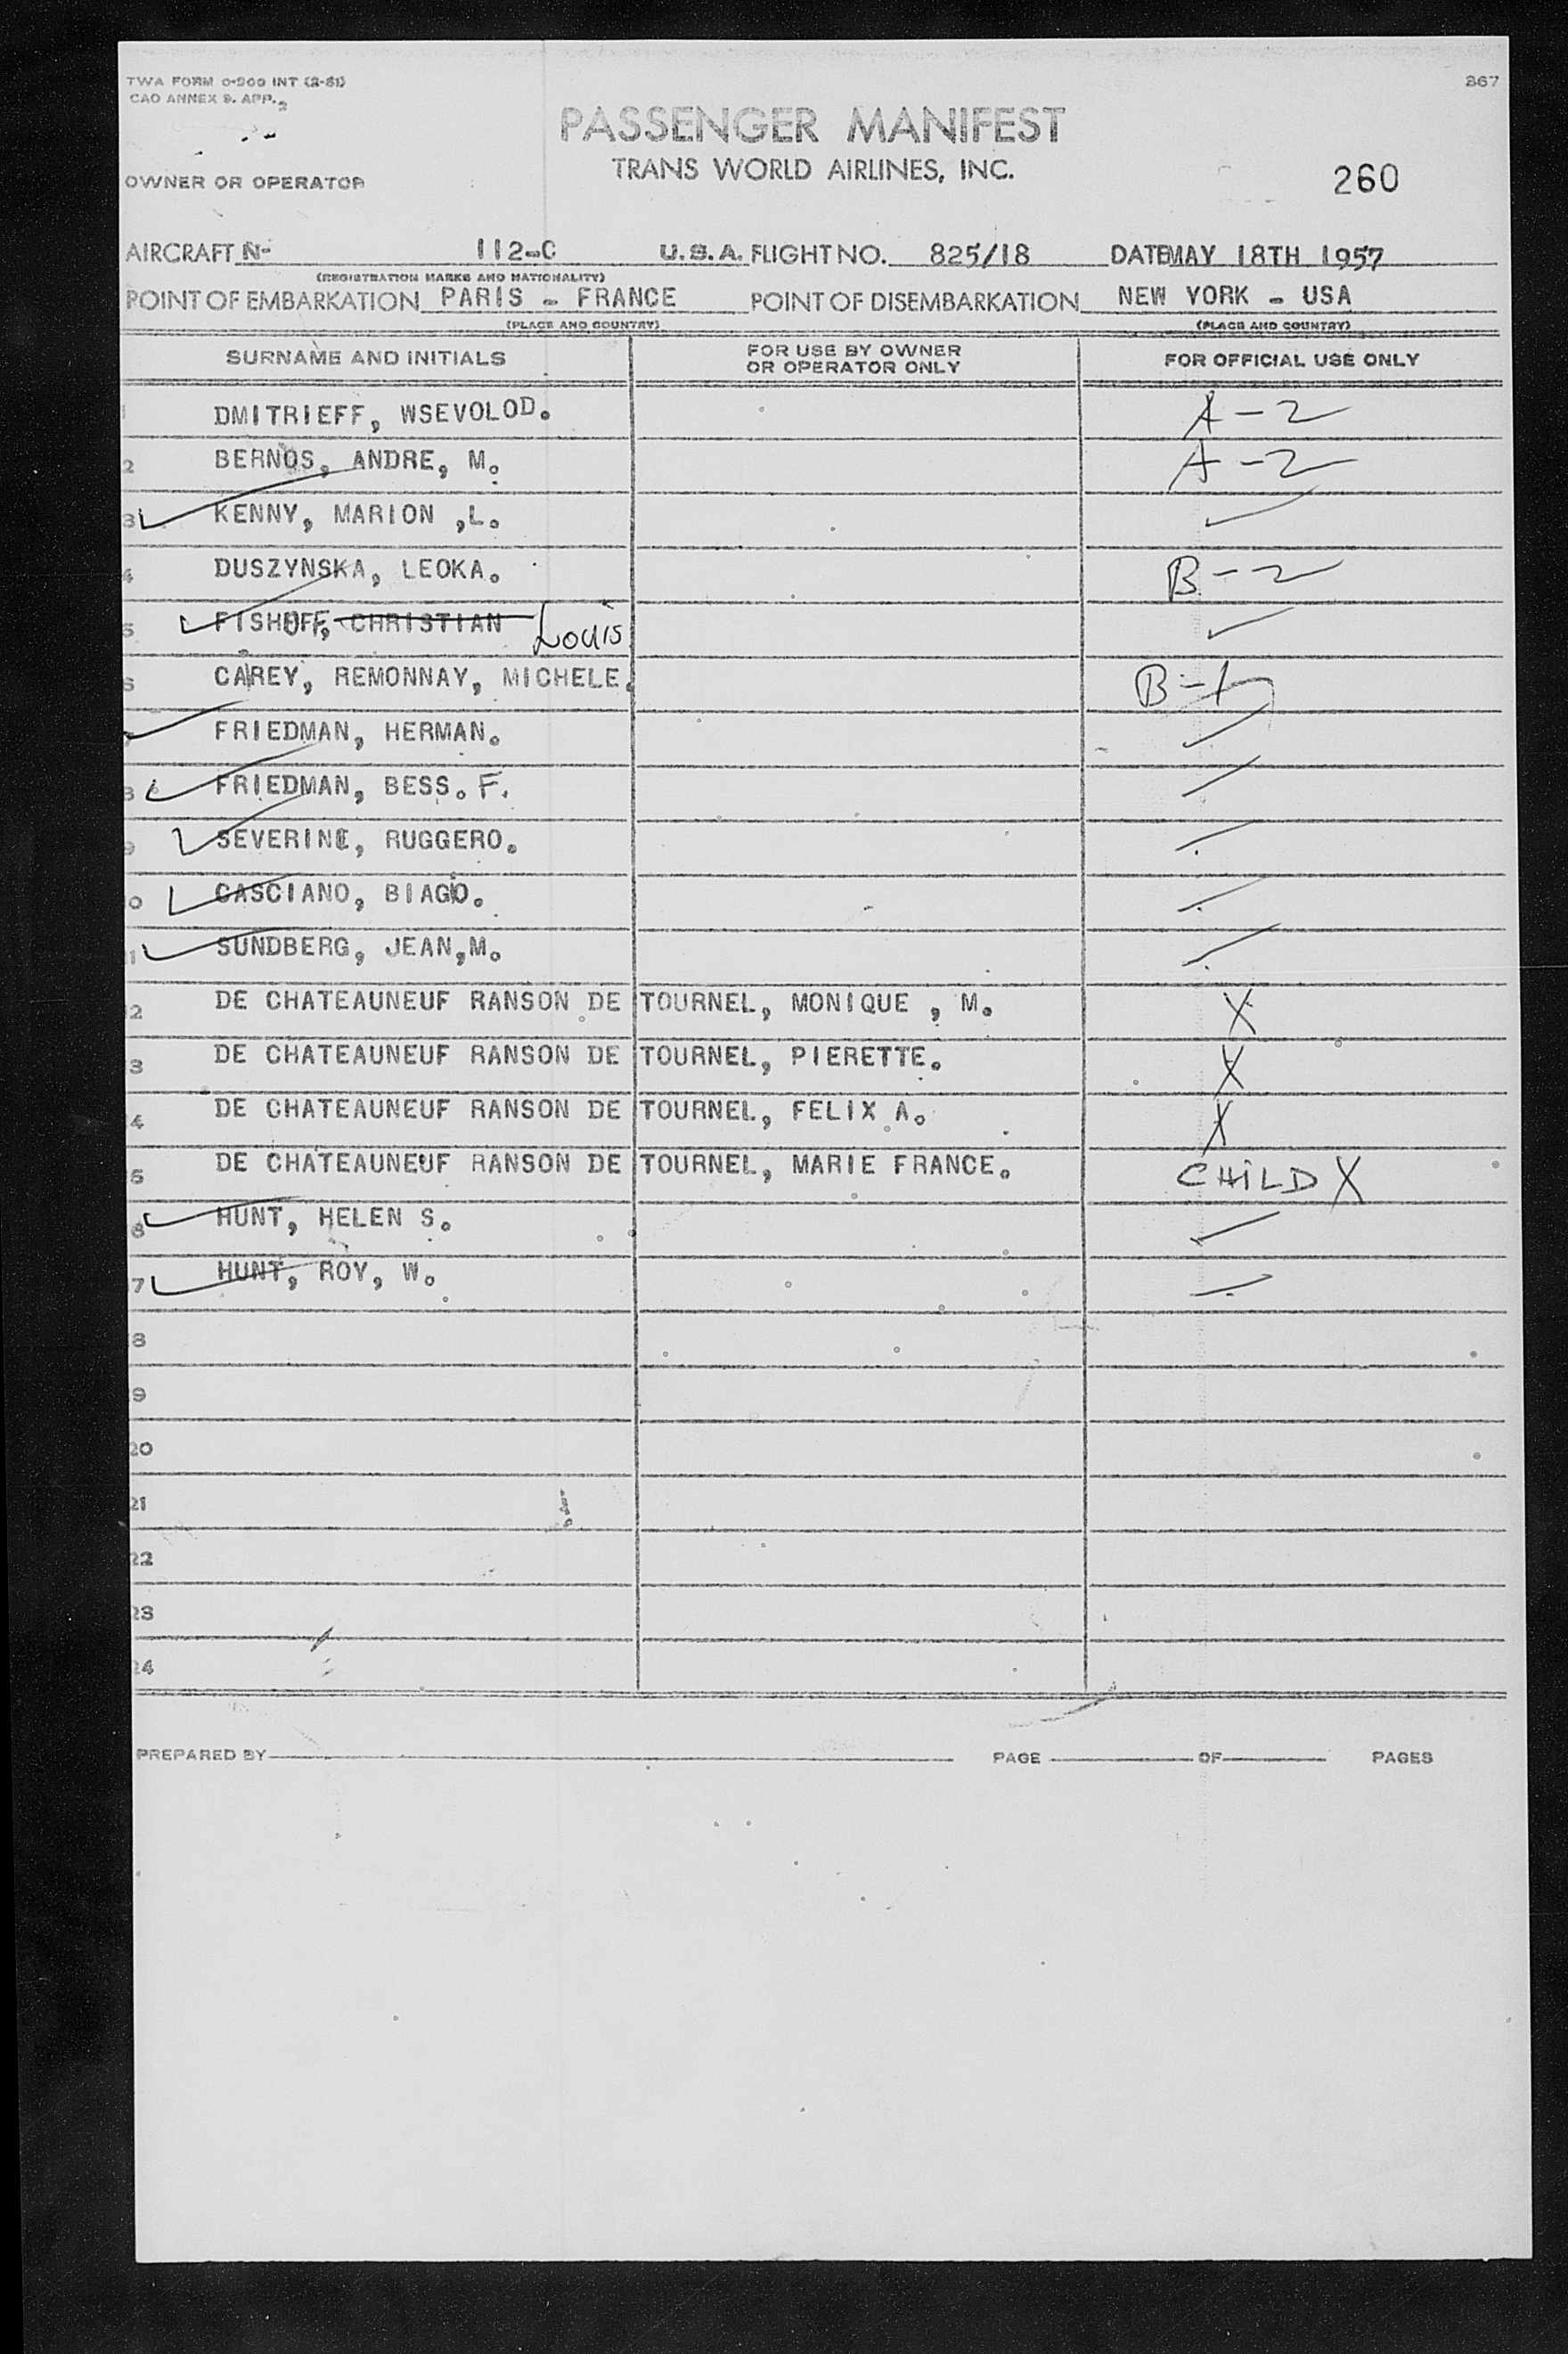 TWA FORM 0-900 INT (2-51)
CAO ANNEX 9. APP. 2
867
PASSENGER MANIFEST
TRANS WORLD AIRLINES, INC.
260
OWNER OR OPERATOR
AIRCRAFT N- 112-C U.S.A. FLIGHT NO. 825/18 DATE MAY 18TH 1957
(REGISTRATION MARKS AND NATIONALITY)
POINT OF EMBARKATION PARIS - FRANCE POINT OF DISEMBARKATION NEW YORK - USA
(PLACE AND COUNTRY) (PLACE AND COUNTRY)
SURNAME AND INITIALS FOR USE BY OWNER OR OPERATOR ONLY FOR OFFICIAL USE ONLY
DMITRIEFF, WSEVOLOD. A-2
2 BERNOS, ANDRE, M. A-2
3 KENNY, MARION ,L. ✓
4 DUSZYNSKA, LEOKA. B-2
5 FISHOFF, CHRISTIAN Louis ✓
6 CAREY, REMONNAY, MICHELE. B-1
FRIEDMAN, HERMAN. ✓
8 FRIEDMAN, BESS. F.
9 SEVERINI, RUGGERO.
0 CASCIANO, BIAGIO.
1 SUNDBERG, JEAN,M.
2 DE CHATEAUNEUF RANSON DE TOURNEL, MONIQUE , M. X
3 DE CHATEAUNEUF RANSON DE TOURNEL, PIERETTE. X
4 DE CHATEAUNEUF RANSON DE TOURNEL, FELIX A. X
5 DE CHATEAUNEUF RANSON DE TOURNEL, MARIE FRANCE. CHILD X
6 HUNT, HELEN S. ✓
7 HUNT, ROY, W.
8
9
20
21
22
23
24
PREPARED BY PAGE OF PAGES